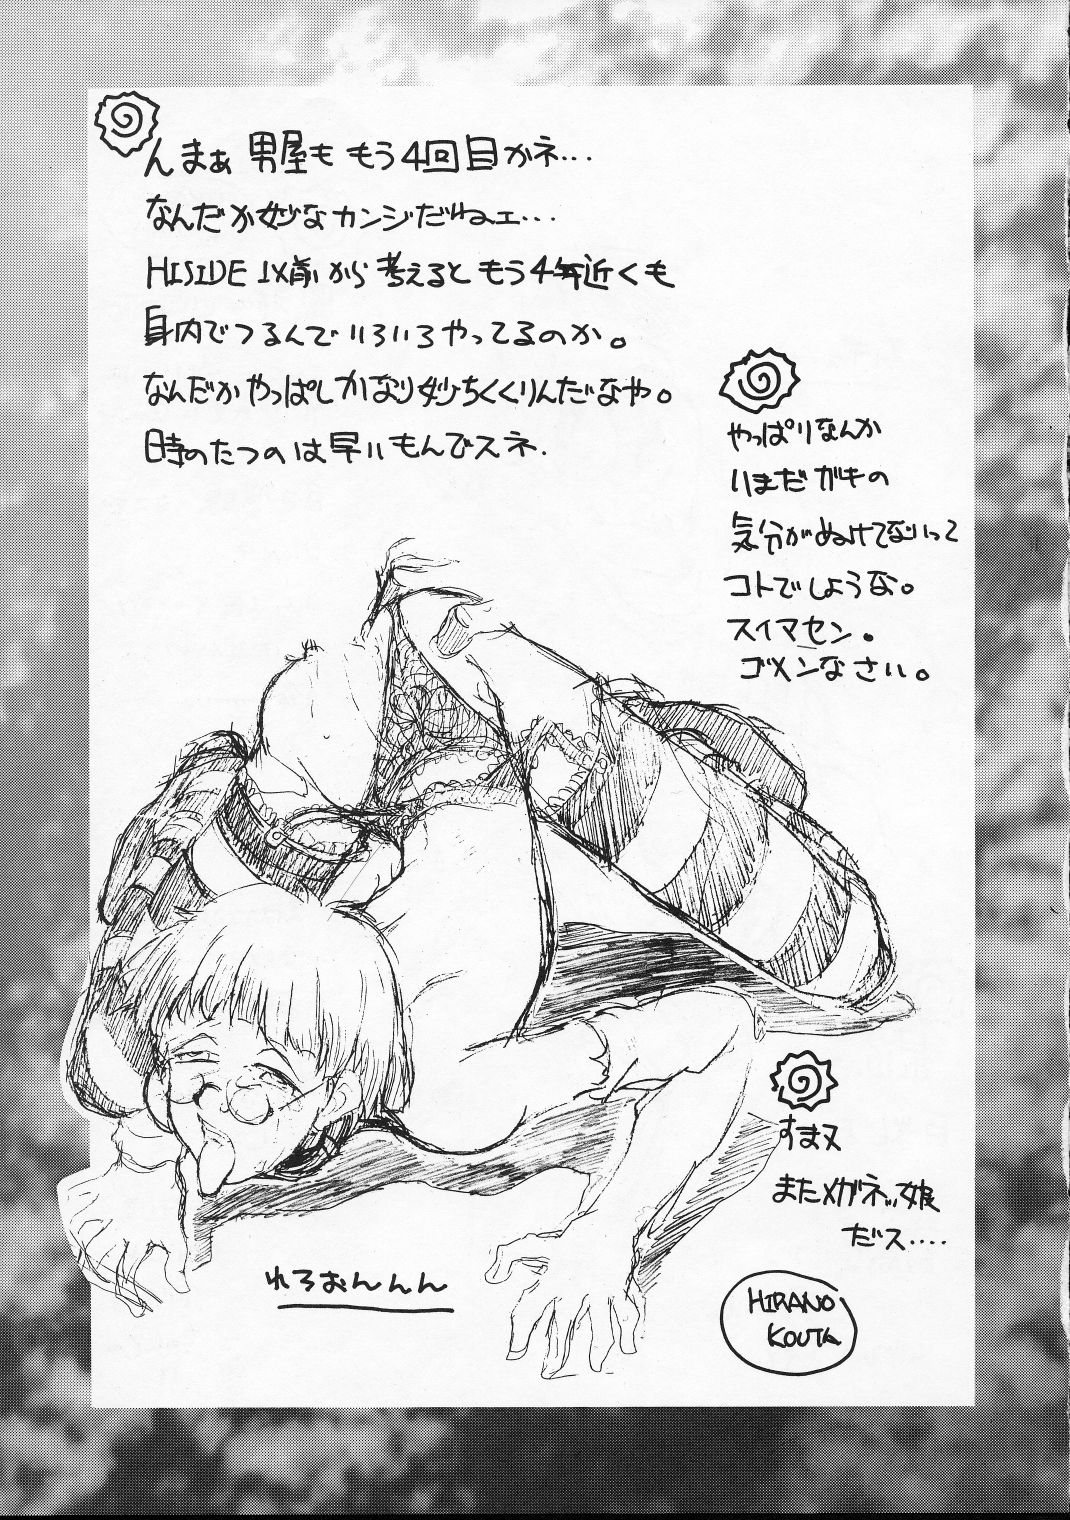 んまぁ 男屋も もう4回目かネ...
なんだか妙なカンジだねェ...
HISIDE 以前から考えると もう4年近くも
身内でつるんで いろいろやってるのか。
なんだかやっぱしかなり妙ちくくりんだなや。
時のたつのは早いもんでスネ.
やっぱりなんか
いまだガキの
気分がぬけてないって
コトでしょうな。
スイマセン。
ゴメンなさい。
すまヌ
またメガネッ娘
だス....
れろおんんん
HIRANO
KOUTA